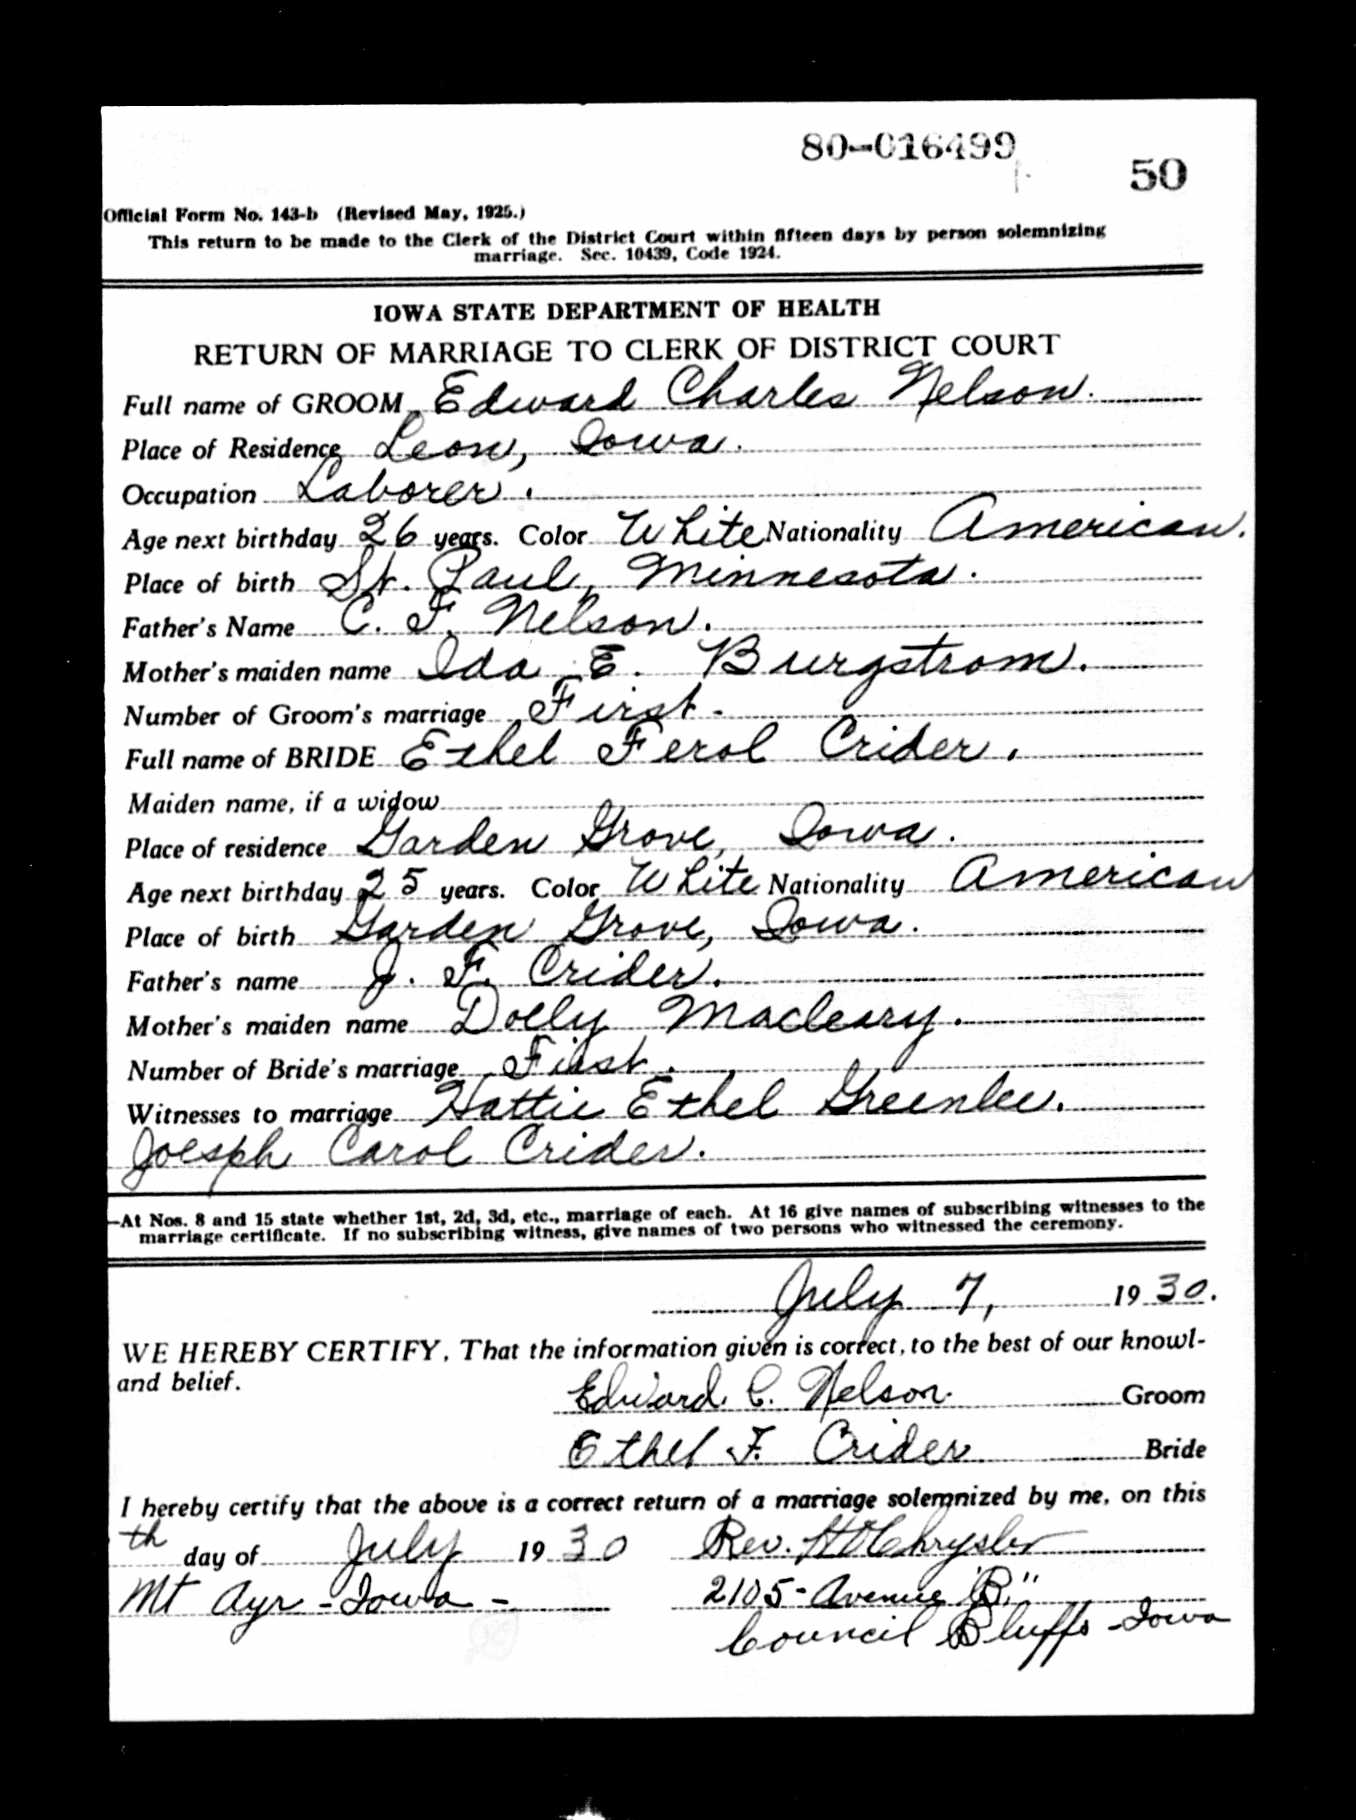 80-016499
50
Official Form No. 143-b (Revised May, 1925.)
This return to be made to the Clerk of the District Court within fifteen days by person solemnizing
marriage. Sec. 10439, Code 1924.
IOWA STATE DEPARTMENT OF HEALTH
RETURN OF MARRIAGE TO CLERK OF DISTRICT COURT
Full name of GROOM Edward Charles Nelson.
Place of Residence Leon, Iowa.
Occupation Laborer.
Age next birthday 26 years. Color White Nationality American.
Place of birth St. Paul, Minnesota.
Father's Name C. F. Nelson.
Mother's maiden name Ida E. Burgstrom.
Number of Groom's marriage First.
Full name of BRIDE Ethel Ferol Crider.
Maiden name, if a widow
Place of residence Garden Grove, Iowa.
Age next birthday 25 years. Color White Nationality American
Place of birth Garden Grove, Iowa.
Father's name J. F. Crider.
Mother's maiden name Dolly Macleary.
Number of Bride's marriage First.
Witnesses to marriage Hattie Ethel Greenlee.
Joesph Carol Crider.
—At Nos. 8 and 15 state whether 1st, 2d, 3d, etc., marriage of each. At 16 give names of subscribing witnesses to the
marriage certificate. If no subscribing witness, give names of two persons who witnessed the ceremony.
July 7, 1930.
WE HEREBY CERTIFY, That the information given is correct, to the best of our knowl-
and belief.
Edward C. Nelson. Groom
Ethel F. Crider Bride
I hereby certify that the above is a correct return of a marriage solemnized by me, on this
th day of July 1930 Rev. Chrysler
Mt Ayr - Iowa - 2105 - Avenue "B"
Council Bluffs - Iowa